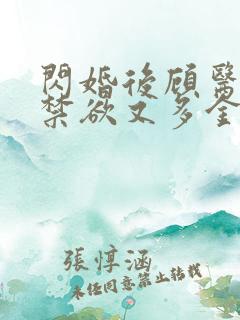 閃婚後顾醫
禁欲又多金
張惇涵
未经同意禁止转载